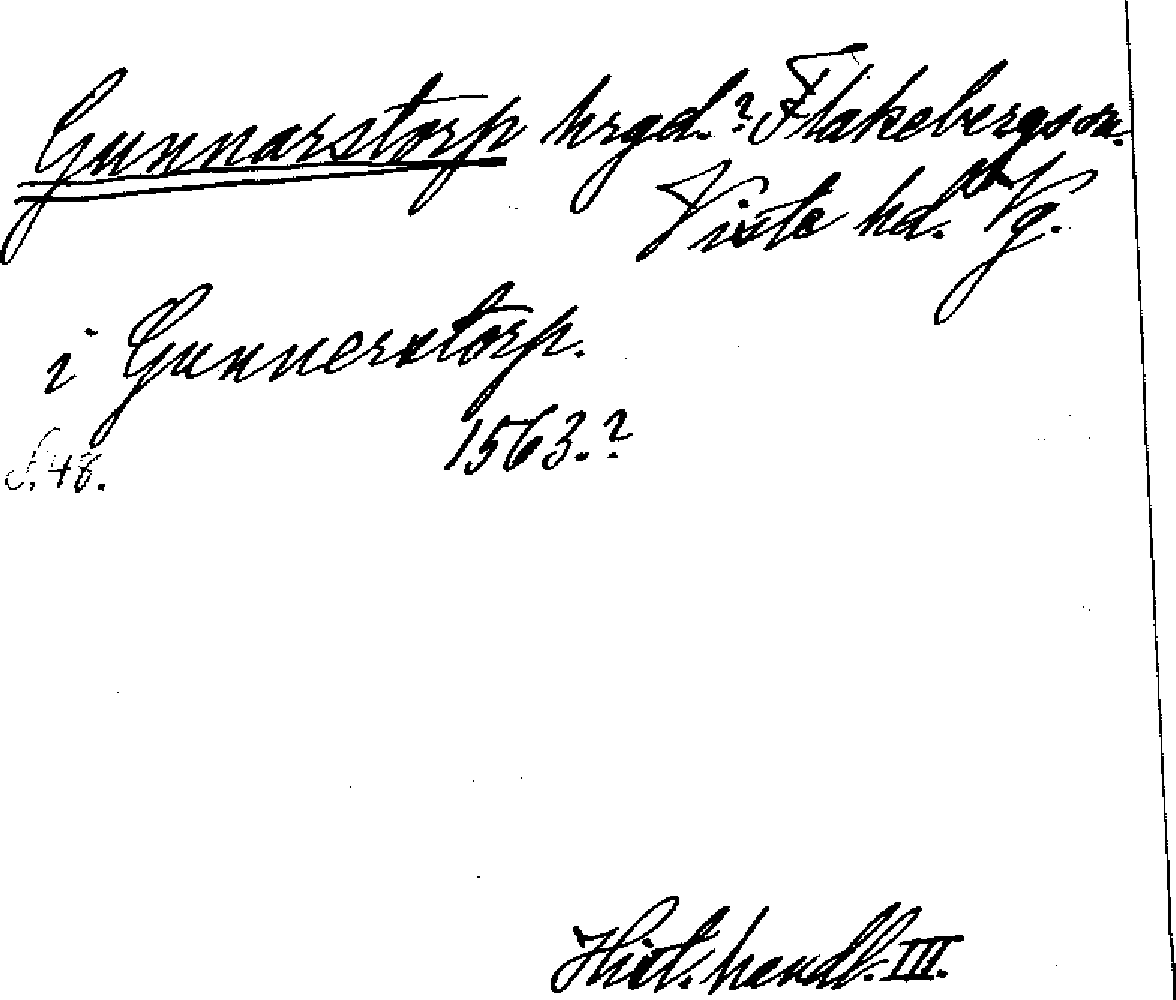 Gunnarstorp hrgd.? Flakebergs sn.
Viste hd. Vg.
i Gunnerstorp.
1563.?
S. 48.
Hist. handl. III.